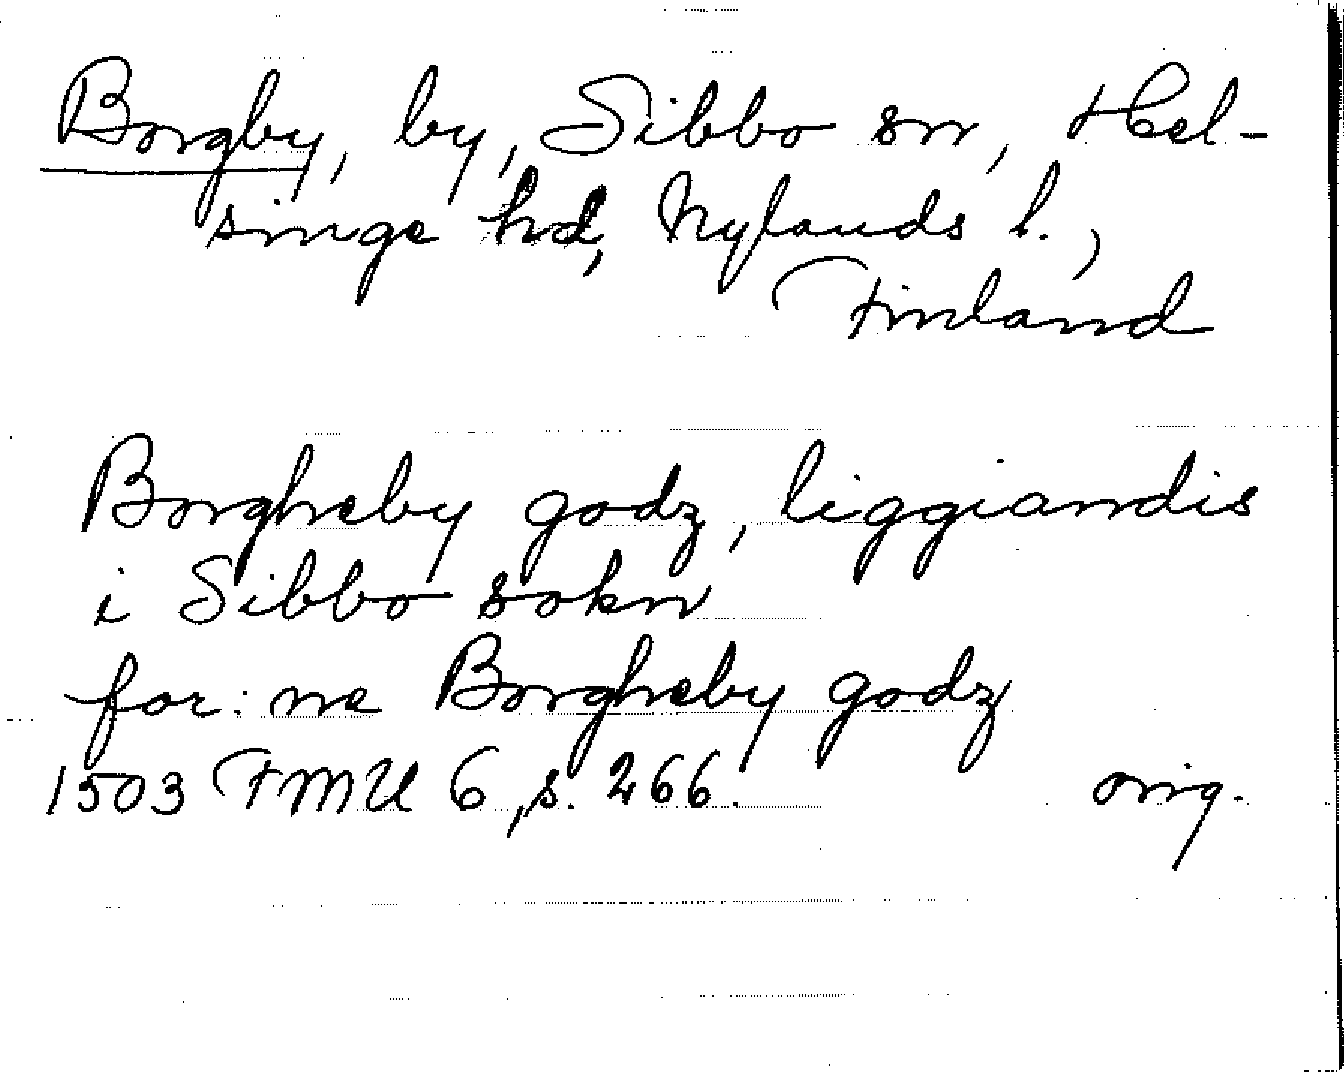 Borgby, by, Sibbo sn, Hel-
singe hd, Nylands l.,
Finland
Borgheby godz, liggiandis
i Sibbo sokn
for: ne Borgheby godz
1503 FMU 6, s. 266.   orig.